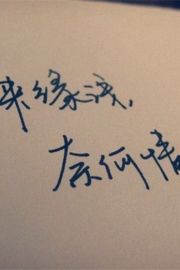 来缘浅，
奈何情